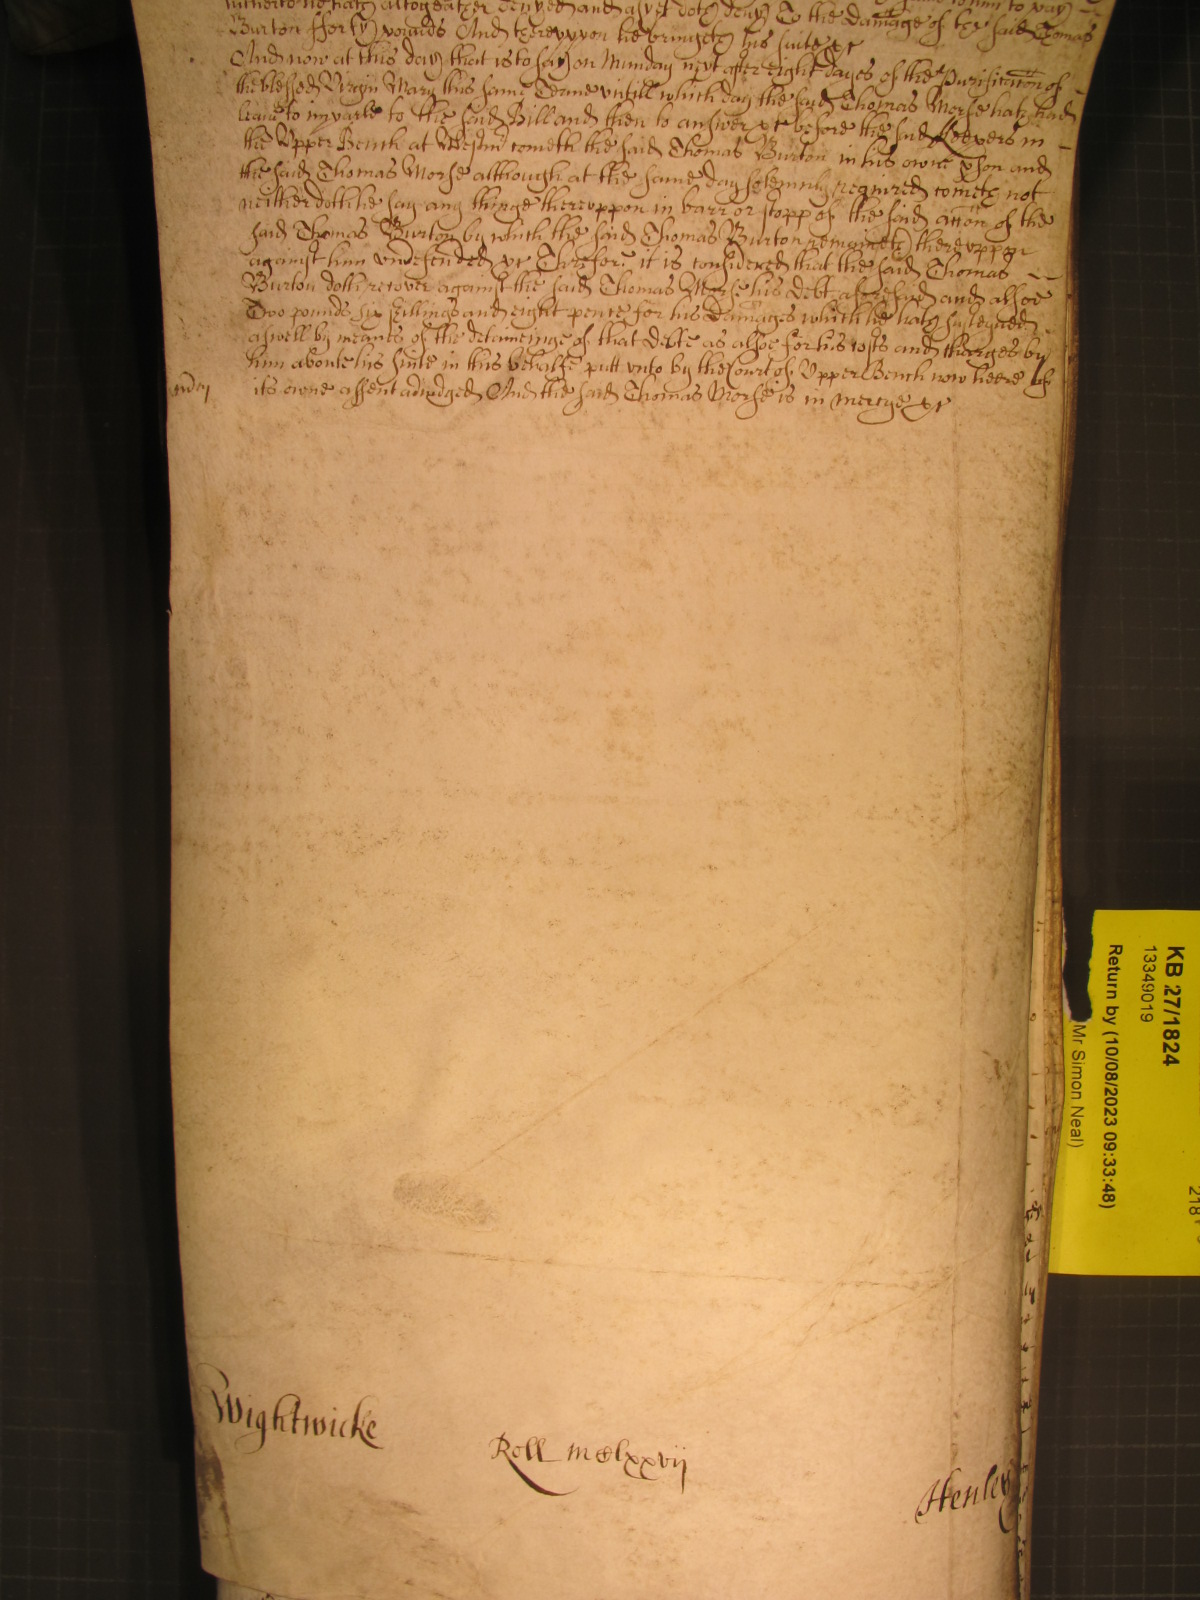 hitherto he hath altogeather denyed and as yet doth deny To the damage of the said Thomas
Burton fforty pounds And thereuppon he bringeth his suite &c
And now at this day that is to say on Munday next after eight dayes of the Purificacon of
the blessed Virgin Mary this same Terme untill which day the said Thomas Morse hath had
leave to imparle to the said Bill and then to answer &c before the said Keepers in
the Upper Bench at Westmr cometh the said Thomas Burton in his owne pson and
the said Thomas Morse although at the same day solemnly required cometh not
neither doth he say any thinge thereuppon in barr or stopp of the said accon of the
said Thomas Burton by which the said Thomas Burton remaineth thereuppon
against him undefended &c Therefore it is considered that the said Thomas
Burton doth recover against the said Thomas Morse his debt aforesaid and alsoe
Two pounds six shillings and eight pence for his damages which he hath susteyned
aswell by meanes of the deteineinge of that debte as alsoe for his costs and charges by
him aboute his suite in this behalfe putt unto by the Court of Upper Bench now heere of
its owne assent adiudged And the said Thomas Morse is in mercye &c
Wightwicke
Roll mclxxvij
Henley
KB 27/1824
13349019
Return by (10/08/2023 09:33:48)
Mr Simon Neal)